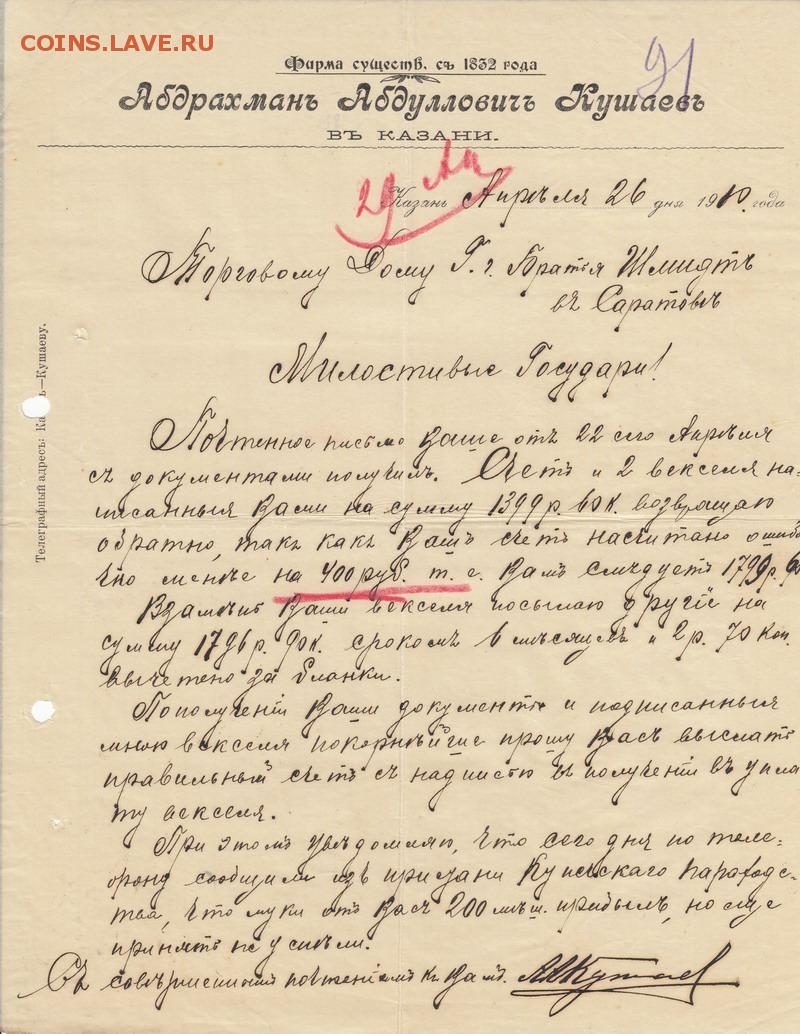 COINS.LAVE.RU
91
Фирма существ. съ 1832 года
Абдрахманъ Абдулловичъ Кушаевъ
ВЪ КАЗАНИ.
29 Ап
Казань Апрѣля 26 дня 1910. года
Торговому Дому Г. г. Братья Шмидтъ
въ Саратовѣ
Милостивые Государи!
Почтенное письмо Ваше отъ 22 сего Апрѣля
съ документами получилъ. Счетъ и 2 векселя на=
писанныя Вами на сумму 1399 р. 60 к. возвращаю
обратно, такъ какъ Вашъ счетъ насчитано ошибо
чно менѣе на 400 руб. т. е. Вамъ слѣдуетъ 1799 р. 60
Взамѣнъ Ваши векселя посылаю другіе на
сумму 1796 р. 90 к. срокомъ 6 мѣсяцевъ и 2 р. 70 коп.
вычтено за бланки.
По полученіи Ваши документы и подписанныя
мною векселя покорнѣйше прошу Васъ выслать
правильный счетъ съ надписью въ полученіи въ упла
ту векселя.
При этомъ увѣдомляю, что сего дня по теле=
фону сообщили изъ пристани Купеческаго пароходс=
тва, что муки отъ Васъ 200 мѣш. прибылъ, но еще
принять не успѣли.
Съ совершеннымъ почтеніемъ къ Вамъ. АКушаев
Телеграфный адресъ: Ка ь—Кушаеву.